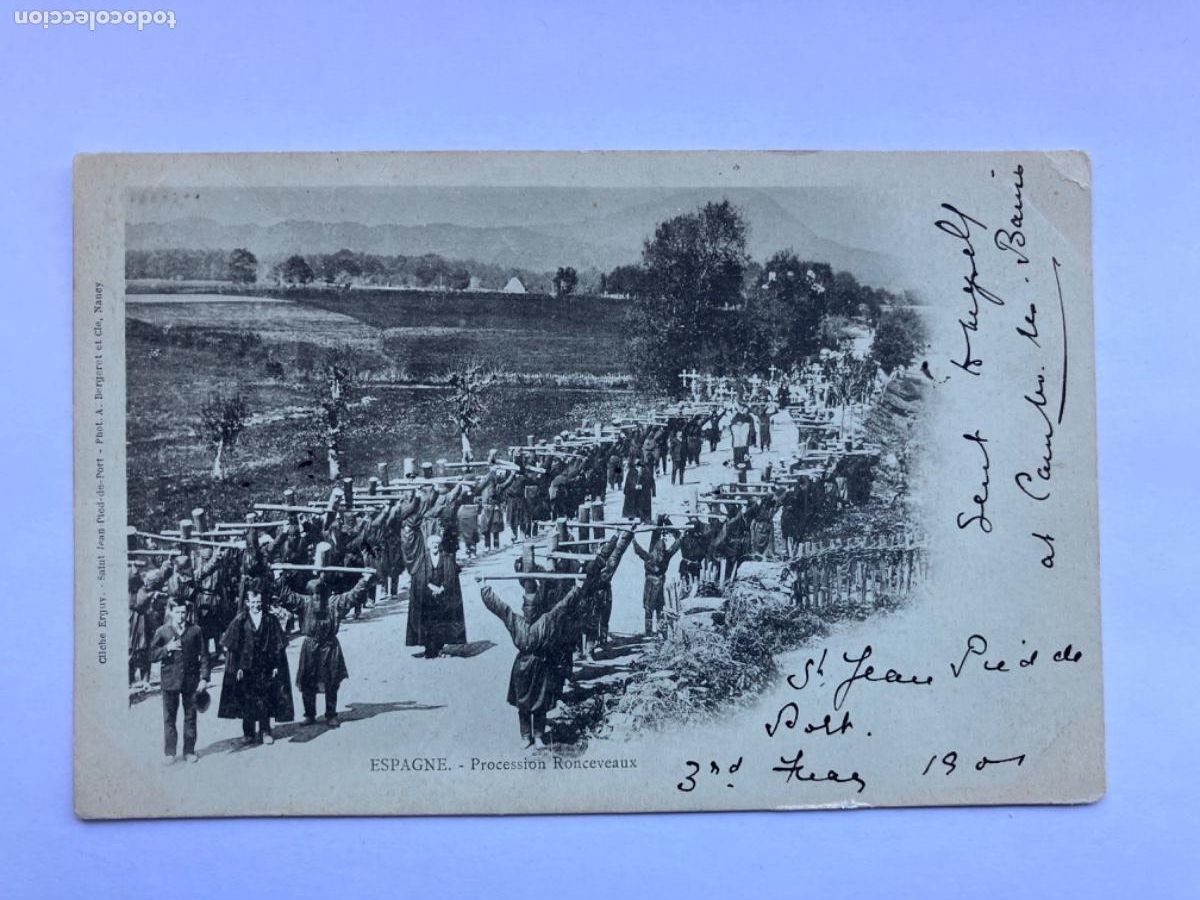 todocoleccion
Cliché Erguy. - Saint Jean Pied-de-Port - Phot. A. Bergeret et Cie, Nancy
ESPAGNE. - Procession Ronceveaux
Sent to myself
at Cambo. les. Bains
St Jean Pied de
Port.
3rd 1901